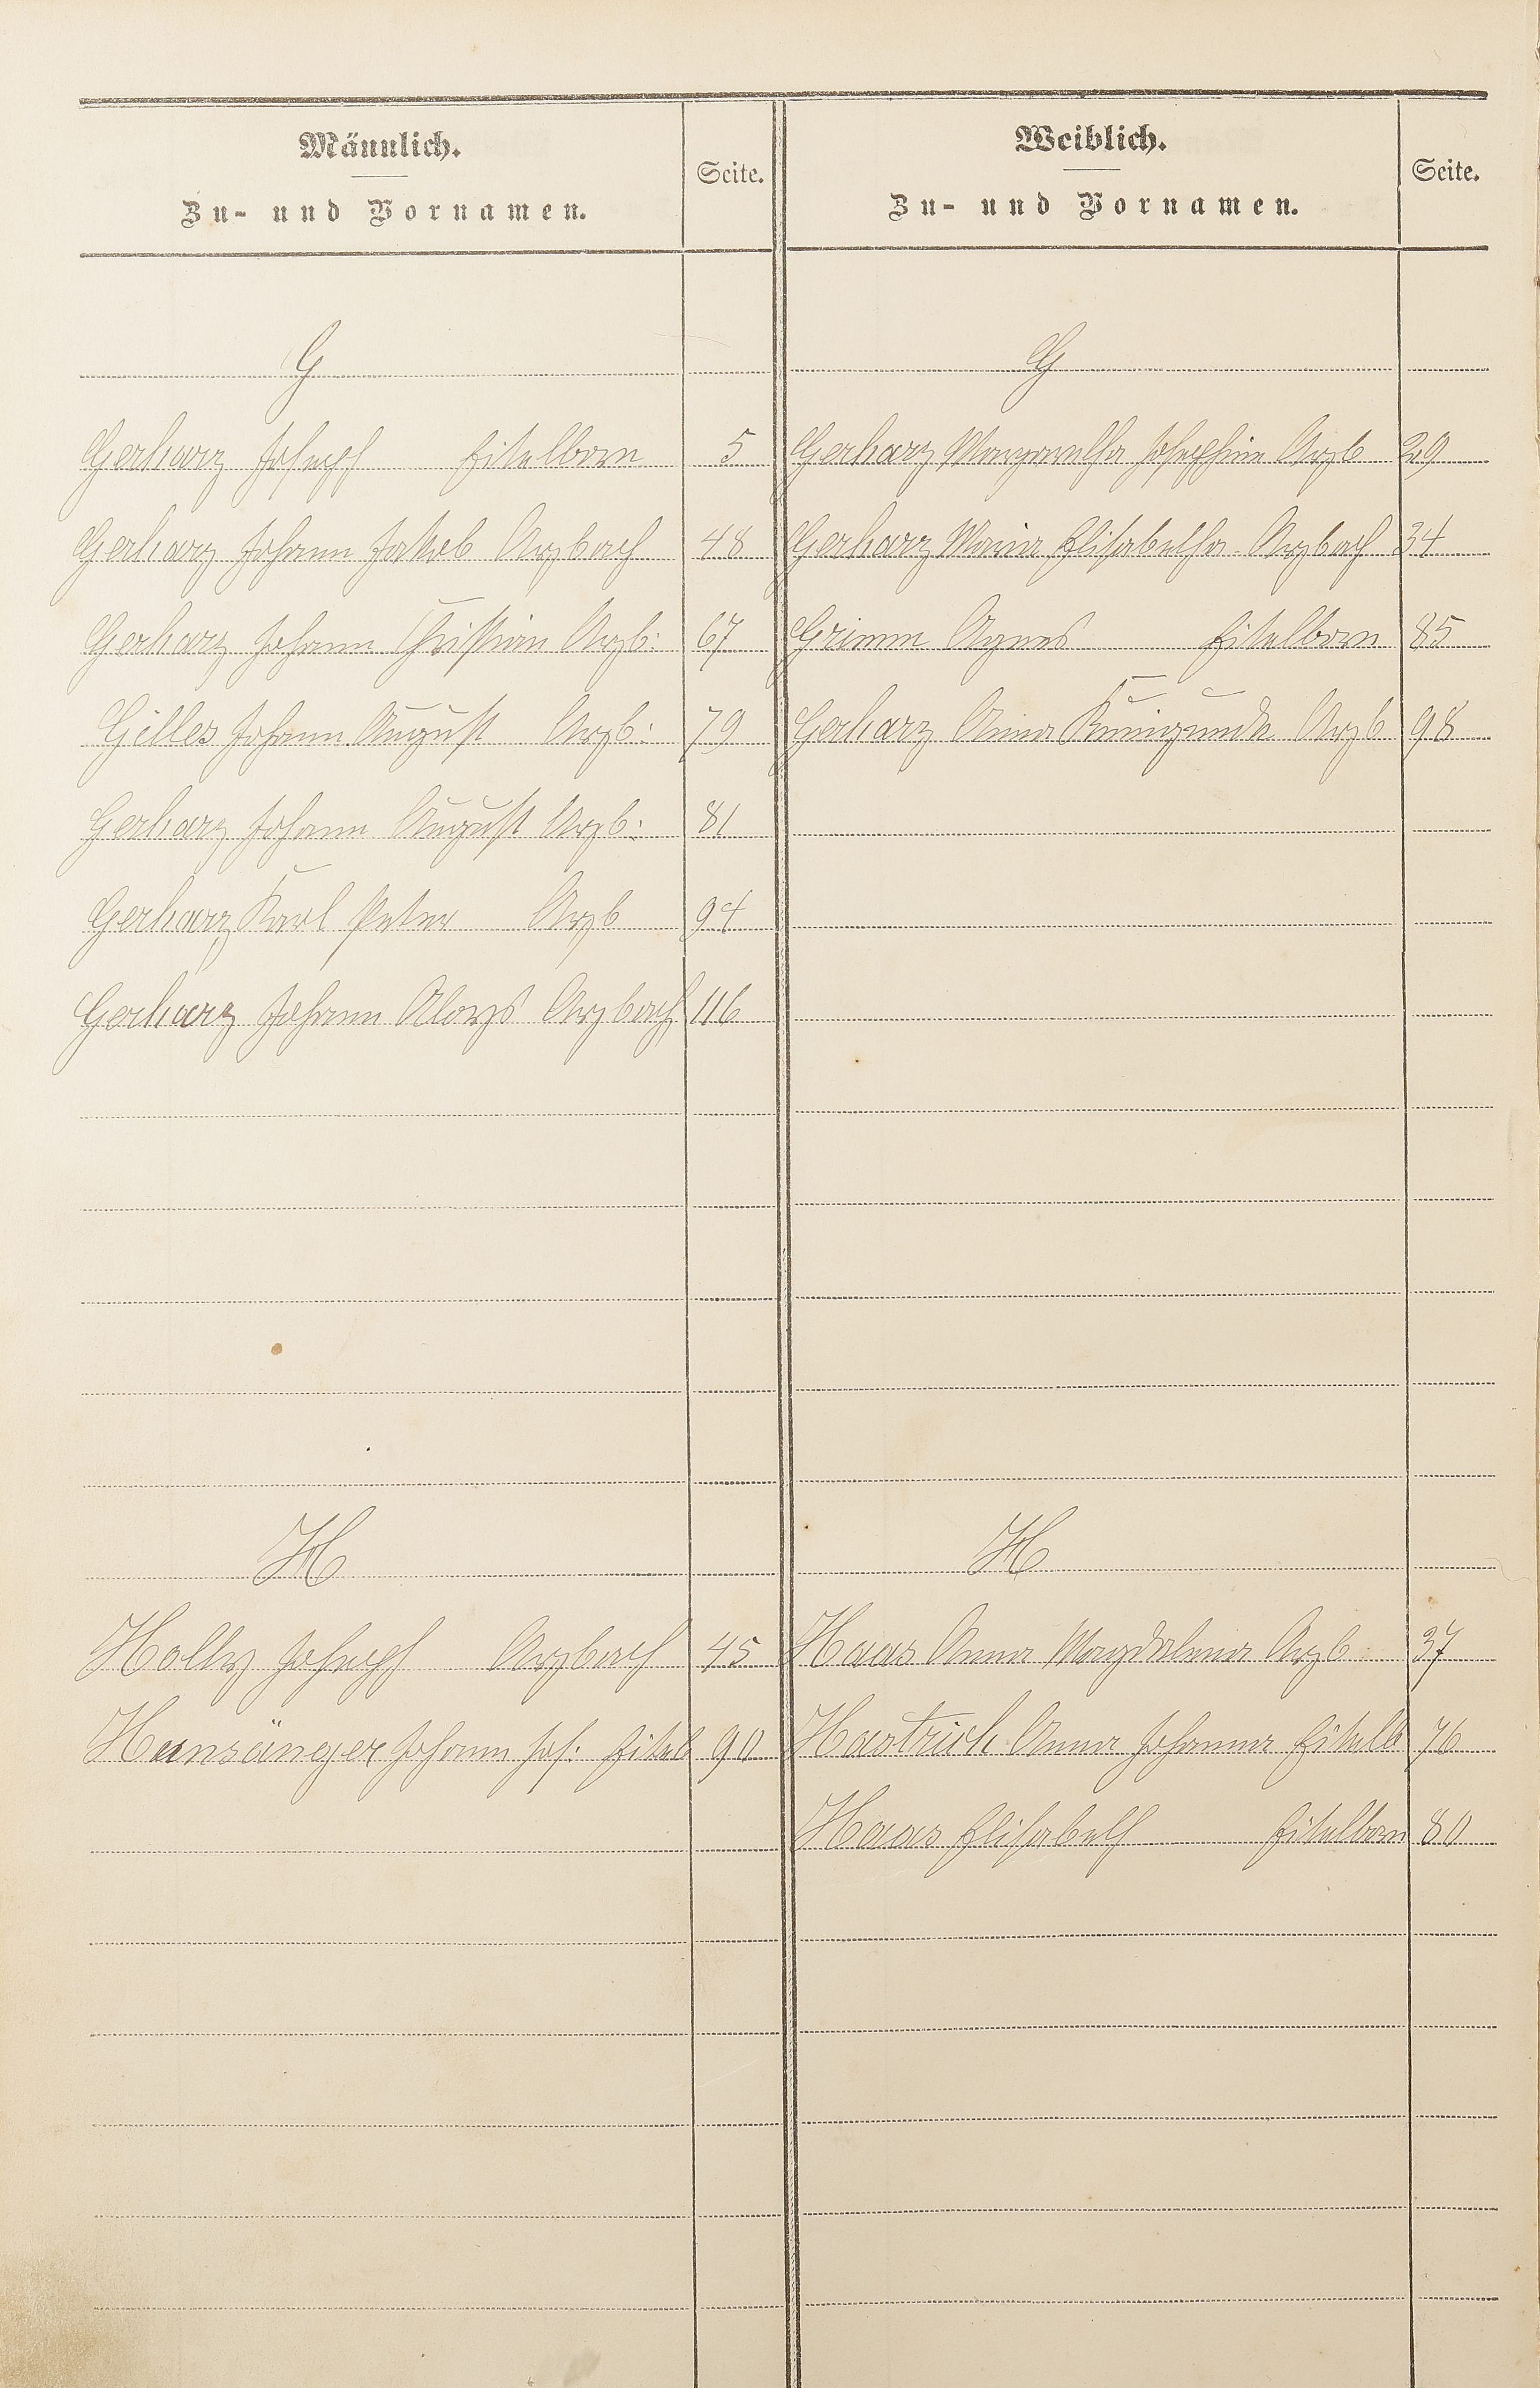 Männlich.
Zu- und Vornamen.
Seite.
Weiblich.
Zu- und Vornamen.
Seite.
G
G
Gerharz Joseph Eitelborn 5
Gerharz Margaretha Josephine Arzb 29
Gerharz Johann Jakob Arzbach 48
Gerharz Maria Elisabetha Arzbach 34
Gerharz Johann Christian Arzb: 67
Grimm Agnes Eitelborn 85
Gilles Johann August Arzb: 79
Gerharz Anna Kunigunde Arzb 98
Gerharz Johann August Arzb: 81
Gerharz Karl Peter Arzb 94
Gerharz Johann Aloys Arzbach 116
H
H
Holly Joseph Arzbach 45
Haas Anna Magdalena Arzb 37
Hansänger Johann Jos: Eitelb 90
Hastrich Anna Johanna Eitelb 76
Haas Elisabeth Eitelborn 80